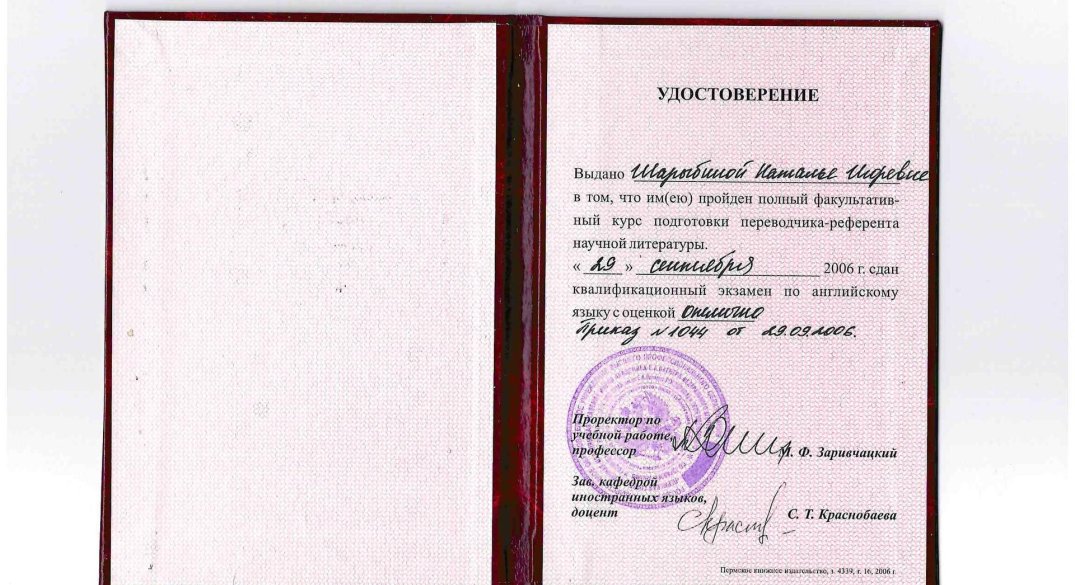 УДОСТОВЕРЕНИЕ
Выдано Шарыбиной Наталье Игоревне
в том, что им(ею) пройден полный факультатив-
ный курс подготовки переводчика-референта
научной литературы.
« 29 » сентября 2006 г. сдан
квалификационный экзамен по английскому
языку с оценкой отлично
Приказ №1044 от 29.09.2006.
Проректор по
учебной работе,
профессор М. Ф. Заривчацкий
Зав. кафедрой
иностранных языков,
доцент С. Т. Краснобаева
Пермское книжное издательство, з. 4339, т. 16, 2006 г.